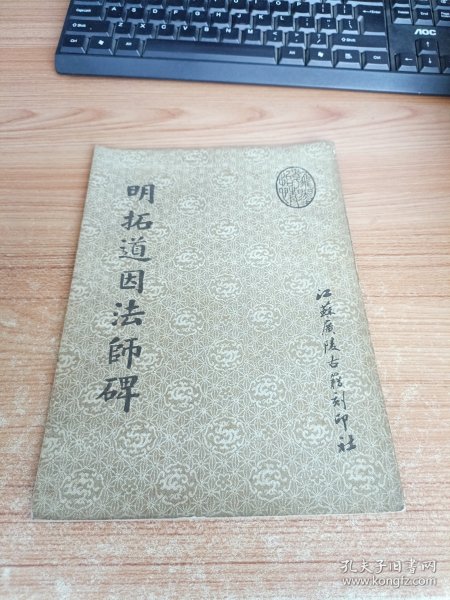 AOC
明拓道因法師碑
江苏廣陵古籍刻印社
孔夫子旧书网
www.kongfz.com